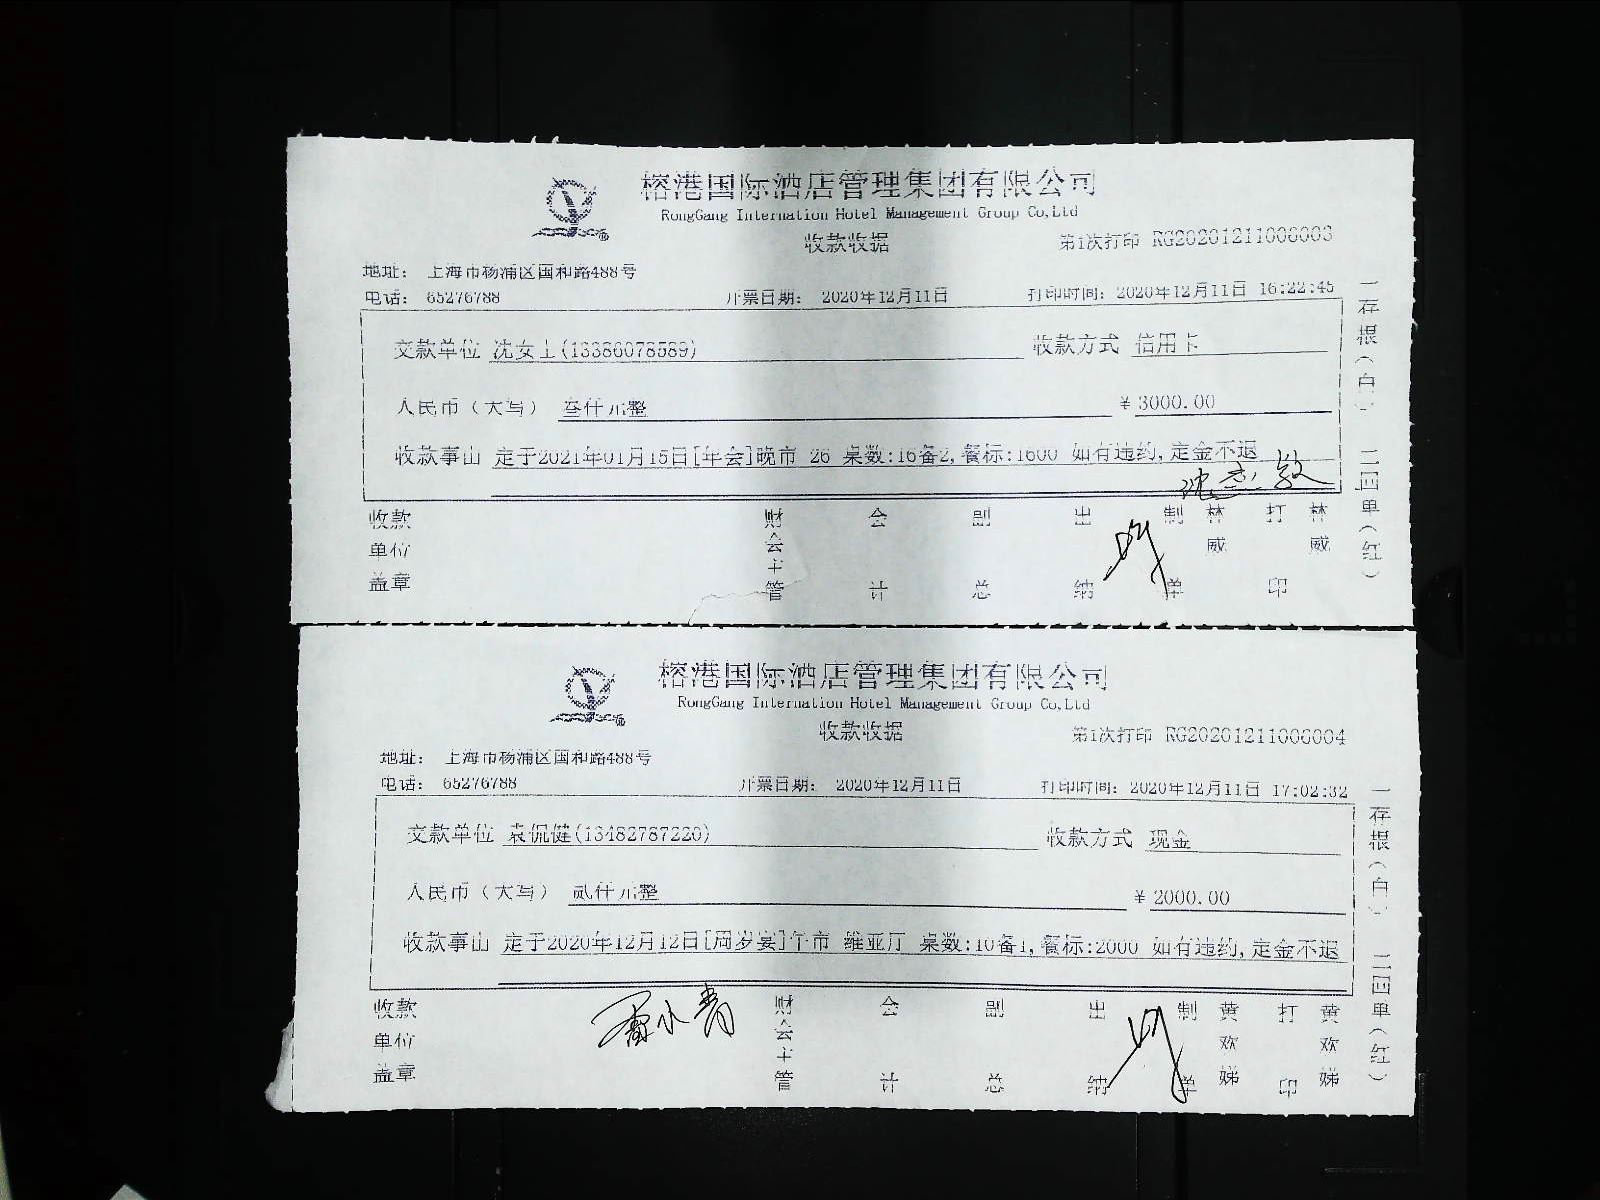 榕港国际酒店管理集团有限公司
RongGang Internation Hotel Management Group Co,Ltd
收款收据
第1次打印 RG20201211006003
地址： 上海市杨浦区国和路488号
电话： 65276788 开票日期： 2020年12月11日 打印时间：2020年12月11日 16:22:45
交款单位 沈女士(13386078589) 收款方式 信用卡
人民币（大写） 叁仟元整 ￥3000.00
收款事由 定于2021年01月15日[年会]晚市 26 桌数:16备2,餐标:1600 如有违约,定金不退
收款单位盖章 财会主管 会计 副总 出纳 制单 林威 打印 林威
一存根（白） 二回单（红）
榕港国际酒店管理集团有限公司
RongGang Internation Hotel Management Group Co,Ltd
收款收据
第1次打印 RG20201211006004
地址： 上海市杨浦区国和路488号
电话： 65276788 开票日期： 2020年12月11日 打印时间：2020年12月11日 17:02:32
交款单位 袁侃健(13482787220) 收款方式 现金
人民币（大写） 贰仟元整 ￥2000.00
收款事由 定于2020年12月12日[周岁宴]午市 维亚厅 桌数:10备1,餐标:2000 如有违约,定金不退
收款单位盖章 财会主管 会计 副总 出纳 制单 黄欢娣 打印 黄欢娣
一存根（白） 二回单（红）